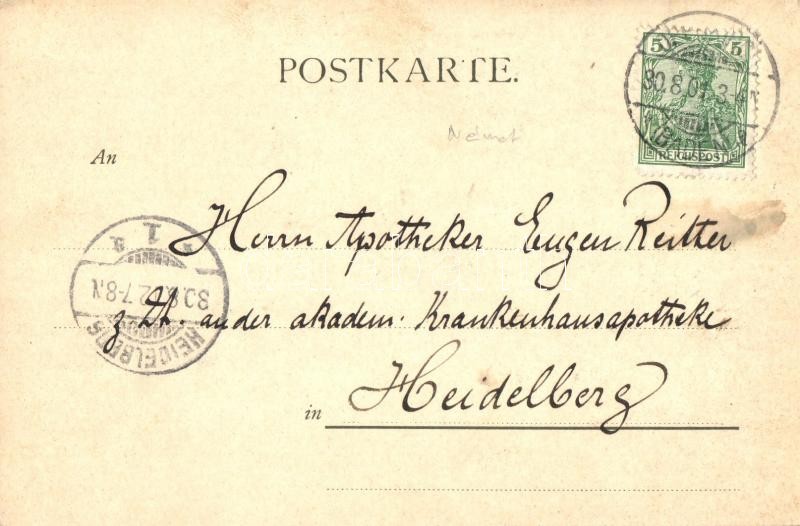 POSTKARTE.
5 5
30.8.0 3-4
BADEN
REICHSPOST
Német
An
Herrn Apotheker Eugen Reitter
z. Zt. an der akadem. Krankenhausapotheke
in Heidelberg
HEIDELBERG
30. 7-8.N
1